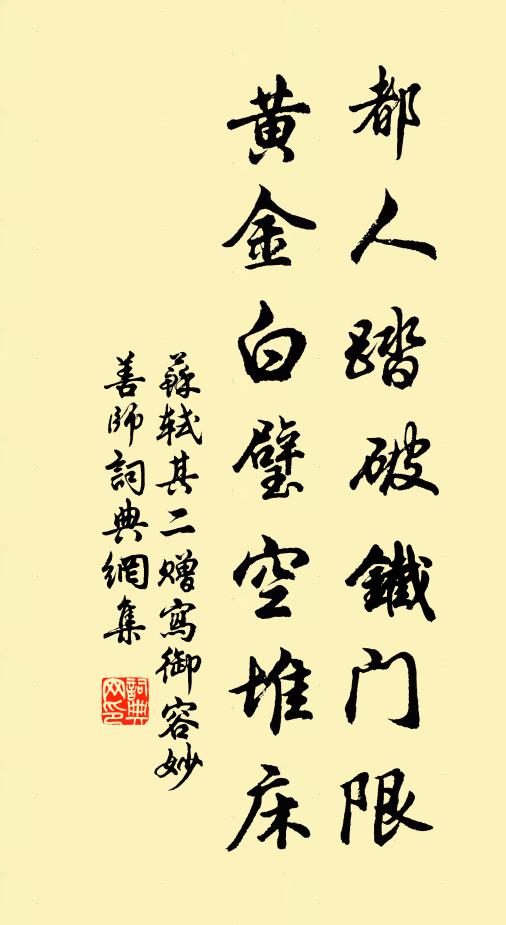 都人踏破鐵門限
黃金白璧空堆床
蘇軾其二贈寫御容妙
善師詞典網集
詞典网印